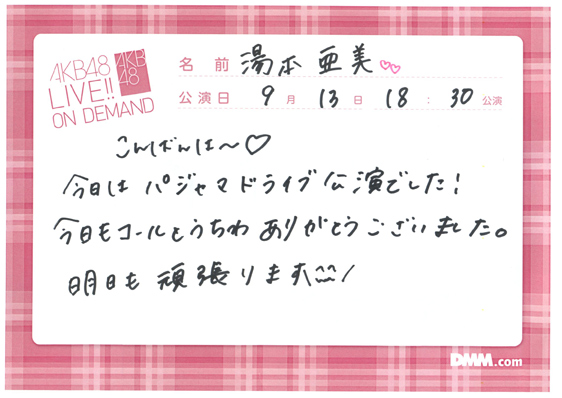 AKB48
LIVE!!
ON DEMAND
AKB
48
名前 湯本亜美
公演日 9月13日 18:30公演
こんばんは〜♡
今日は パジャマドライブ公演でした!
今日もコールとうちわ ありがとうございました。
明日も 頑張ります^^/
DMM.com